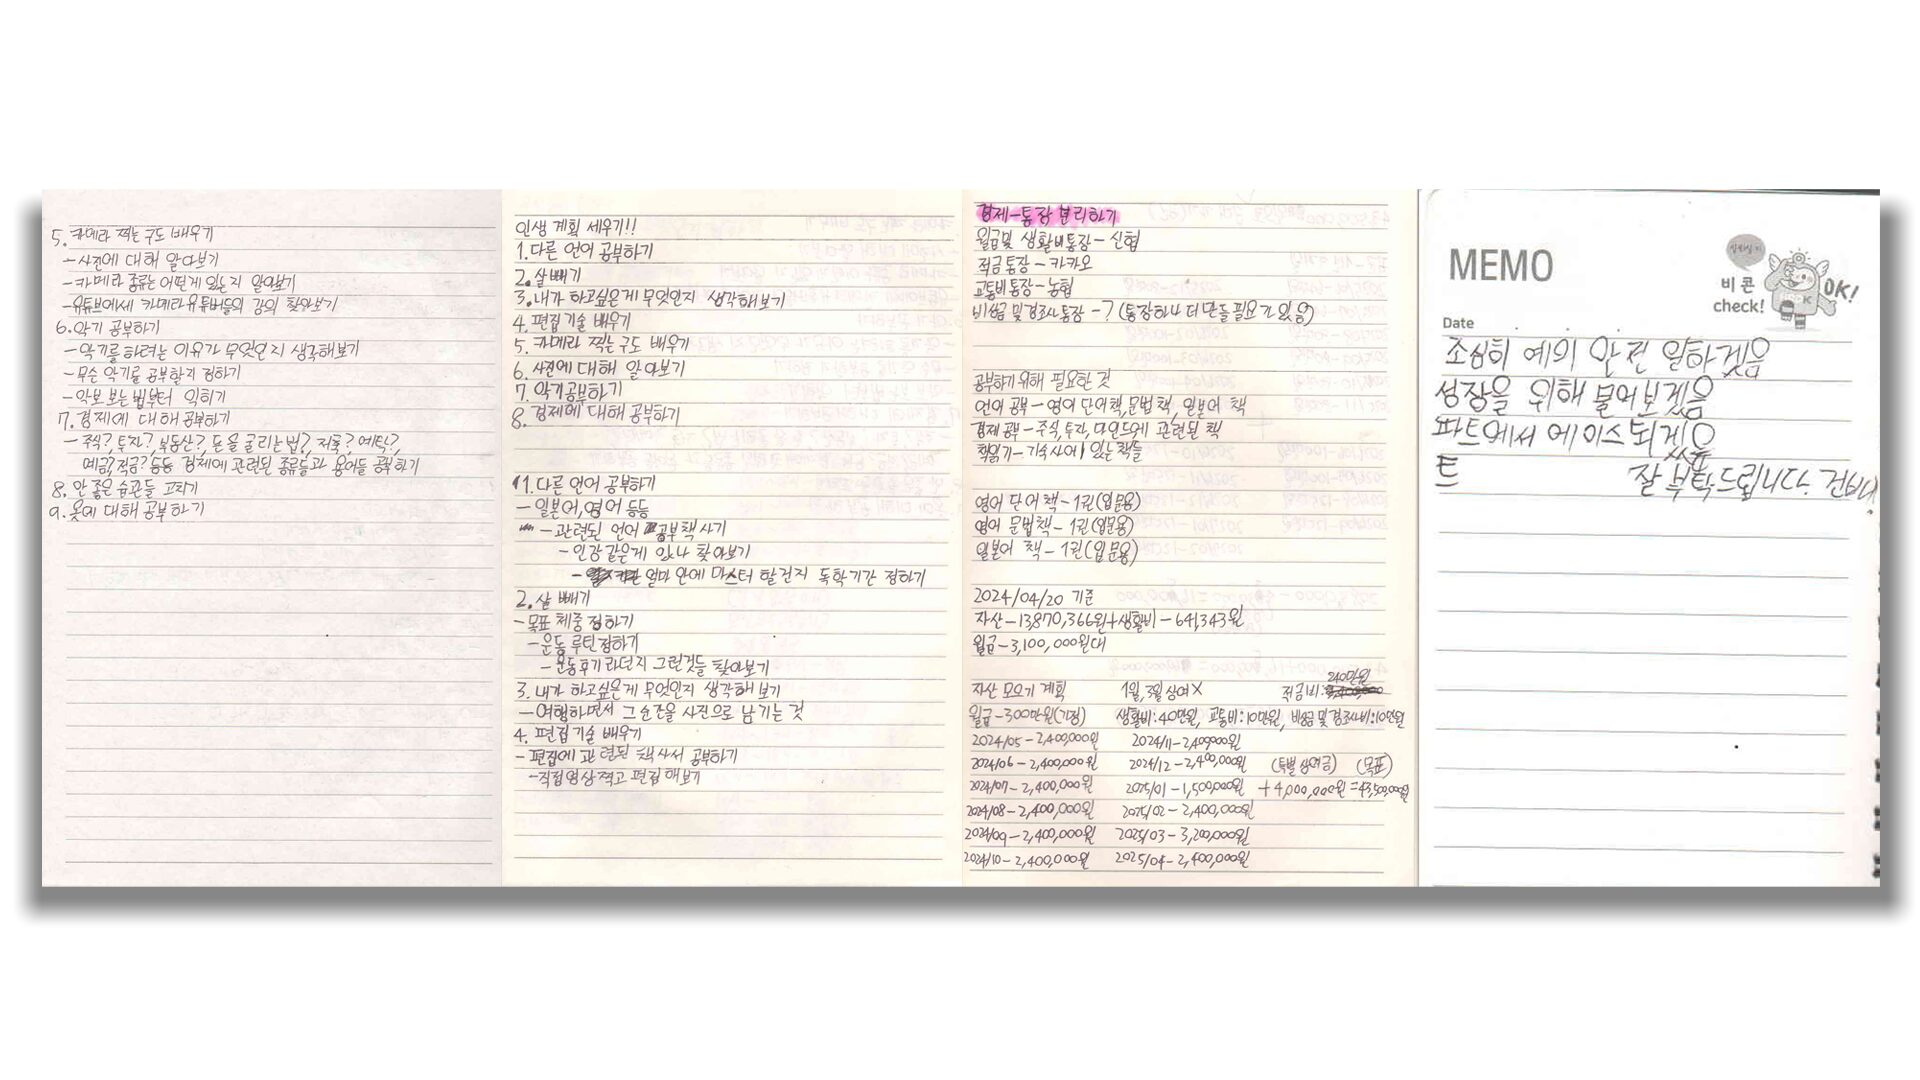 5. 카메라 찍는 구도 배우기
- 사진에 대해 알아보기
- 카메라 종류는 어떤게 있는지 알아보기
- 유튜브에서 카메라 유튜버들의 강의 찾아보기
6. 악기 공부하기
- 악기를 하려는 이유가 무엇인지 생각해보기
- 무슨 악기를 공부할지 정하기
- 악보 보는 법부터 익히기
7. 경제에 대해 공부하기
- 주식?, 투자?, 부동산?, 돈을 굴리는 법?, 저축?, 예탁?,
예금?, 적금? 등등 경제에 관련된 종류들과 용어들 공부하기
8. 안 좋은 습관들 고치기
9. 옷에 대해 공부하기
인생 계획 세우기!!
1. 다른 언어 공부하기
2. 살 빼기
3. 내가 하고싶은게 무엇인지 생각해보기
4. 편집 기술 배우기
5. 카메라 찍는 구도 배우기
6. 사진에 대해 알아보기
7. 악기 공부하기
8. 경제에 대해 공부하기
1. 다른 언어 공부하기
- 일본어, 영어 등등
- 관련된 언어 공부책 사기
- 인강 같은게 있나 찾아보기
- 얼마 안에 마스터 할건지 독학기간 정하기
2. 살 빼기
- 목표 체중 정하기
- 운동 루틴 정하기
- 운동후기라던지 그런것들 찾아보기
3. 내가 하고싶은게 무엇인지 생각해 보기
- 여행하면서 그 순간을 사진으로 남기는 것
4. 편집 기술 배우기
- 편집에 관련된 책 사서 공부하기
- 직접 영상 찍고 편집 해보기
경제-통장 분리하기
월급 및 생활비통장 - 신협
적금 통장 - 카카오
교통비 통장 - 농협
비상금 및 경조사 통장 - ? (통장 하나 더 만들 필요가 있음)
공부하기 위해 필요한 것
언어 공부 - 영어 단어책, 문법책, 일본어 책
경제 공부 - 주식, 투자, 마인드에 관련된 책
책읽기 - 기숙사에 있는 책들
영어 단어책 - 1권(입문용)
영어 문법책 - 1권(입문용)
일본어 책 - 1권(입문용)
2024/04/20 기준
자산 - 13,870,366원 + 생활비 - 641,343원
월급 - 3,100,000원대
자산 모으기 계획 1월, 3월 상여 X 적금비: 240만원
월급 - 300만원(가정) 생활비: 40만원, 교통비: 10만원, 비상금 및 경조사비: 10만원
2024/05 - 2,400,000원 2024/11 - 2,400,000원
2024/06 - 2,400,000원 2024/12 - 2,400,000원 (특별 상여금) (목표)
2024/07 - 2,400,000원 2025/01 - 1,500,000원 + 4,000,000원 = 43,500,000원
2024/08 - 2,400,000원 2025/02 - 2,400,000원
2024/09 - 2,400,000원 2025/03 - 3,200,000원
2024/10 - 2,400,000원 2025/04 - 2,400,000원
MEMO
비콘
check!
OK!
Date
조심히 예의 안전 일하겠음
성장을 위해 물어보겠음
파트에서 에이스되겠음
잘 부탁드립니다.